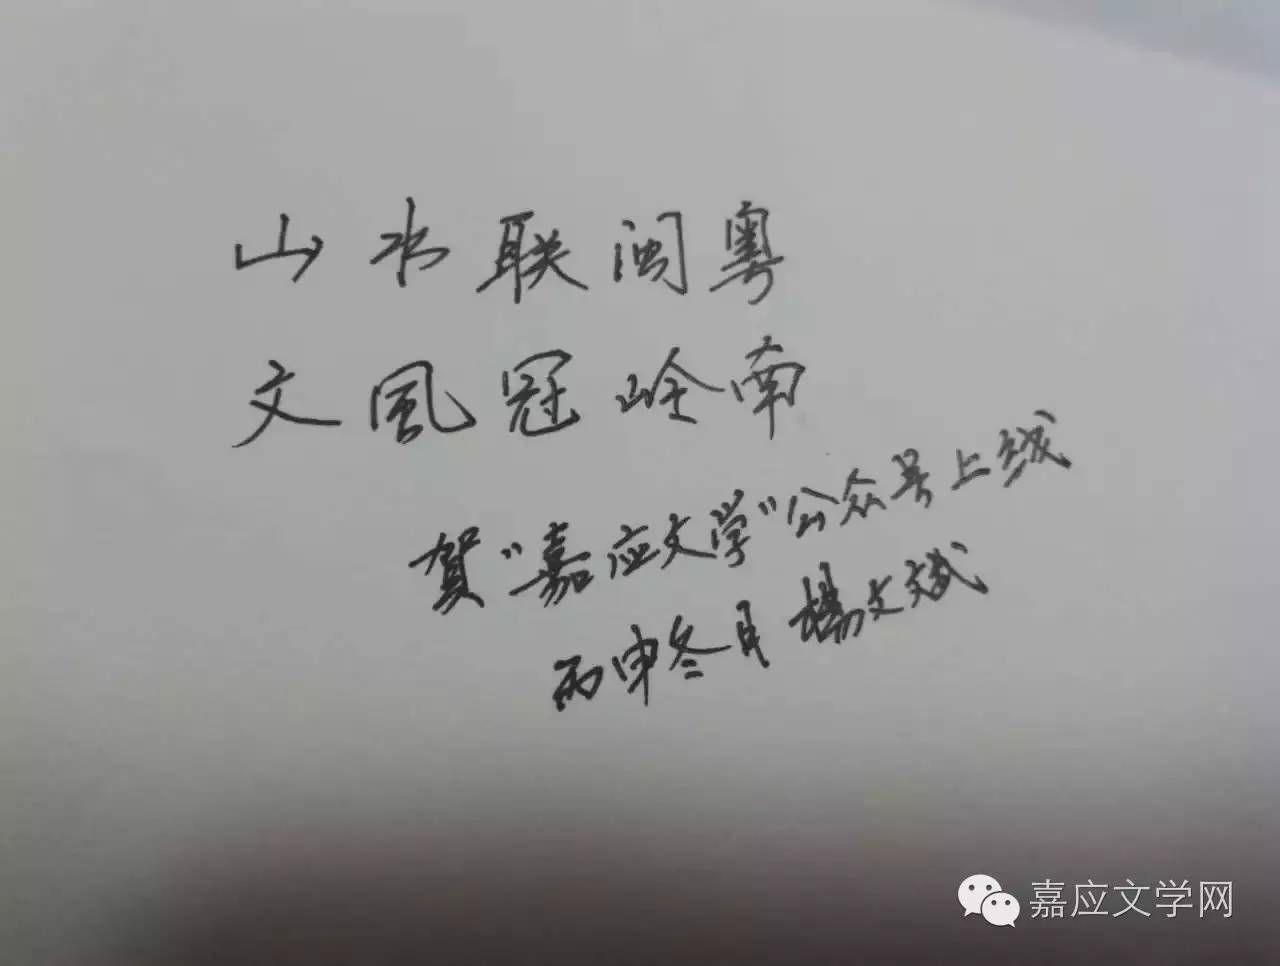 山水联闽粤
文風冠岭南
賀“嘉应文学”公众号上线
丙申冬月 楊文斌
嘉应文学网